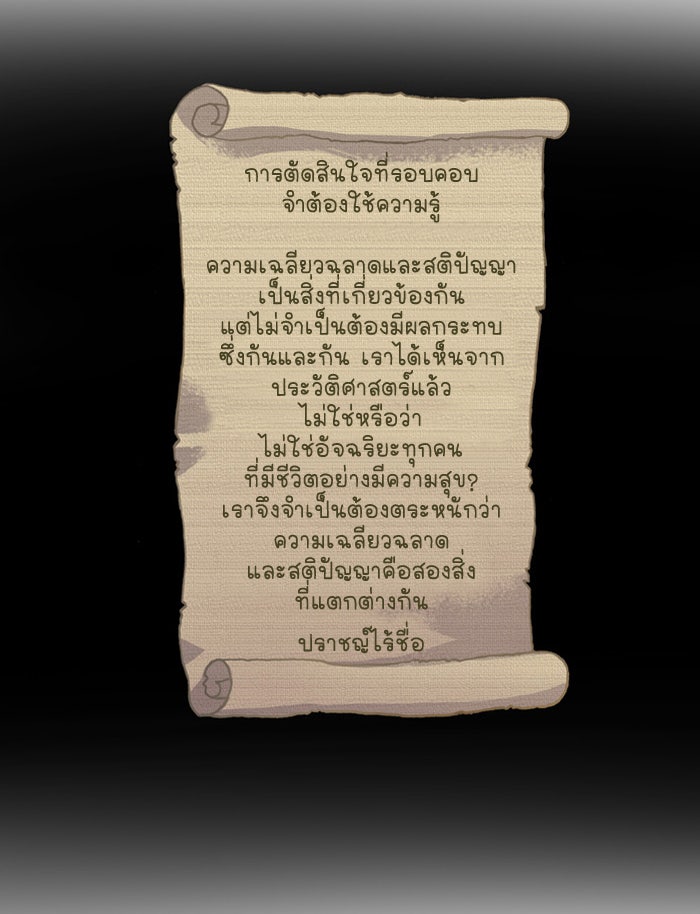 การตัดสินใจที่รอบคอบ
จำต้องใช้ความรู้
ความเฉลียวฉลาดและสติปัญญา
เป็นสิ่งที่เกี่ยวข้องกัน
แต่ไม่จำเป็นต้องมีผลกระทบ
ซึ่งกันและกัน เราได้เห็นจาก
ประวัติศาสตร์แล้ว
ไม่ใช่หรือว่า
ไม่ใช่อัจฉริยะทุกคน
ที่มีชีวิตอย่างมีความสุข?
เราจึงจำเป็นต้องตระหนักว่า
ความเฉลียวฉลาด
และสติปัญญาคือสองสิ่ง
ที่แตกต่างกัน
ปราชญ์ไร้ชื่อ